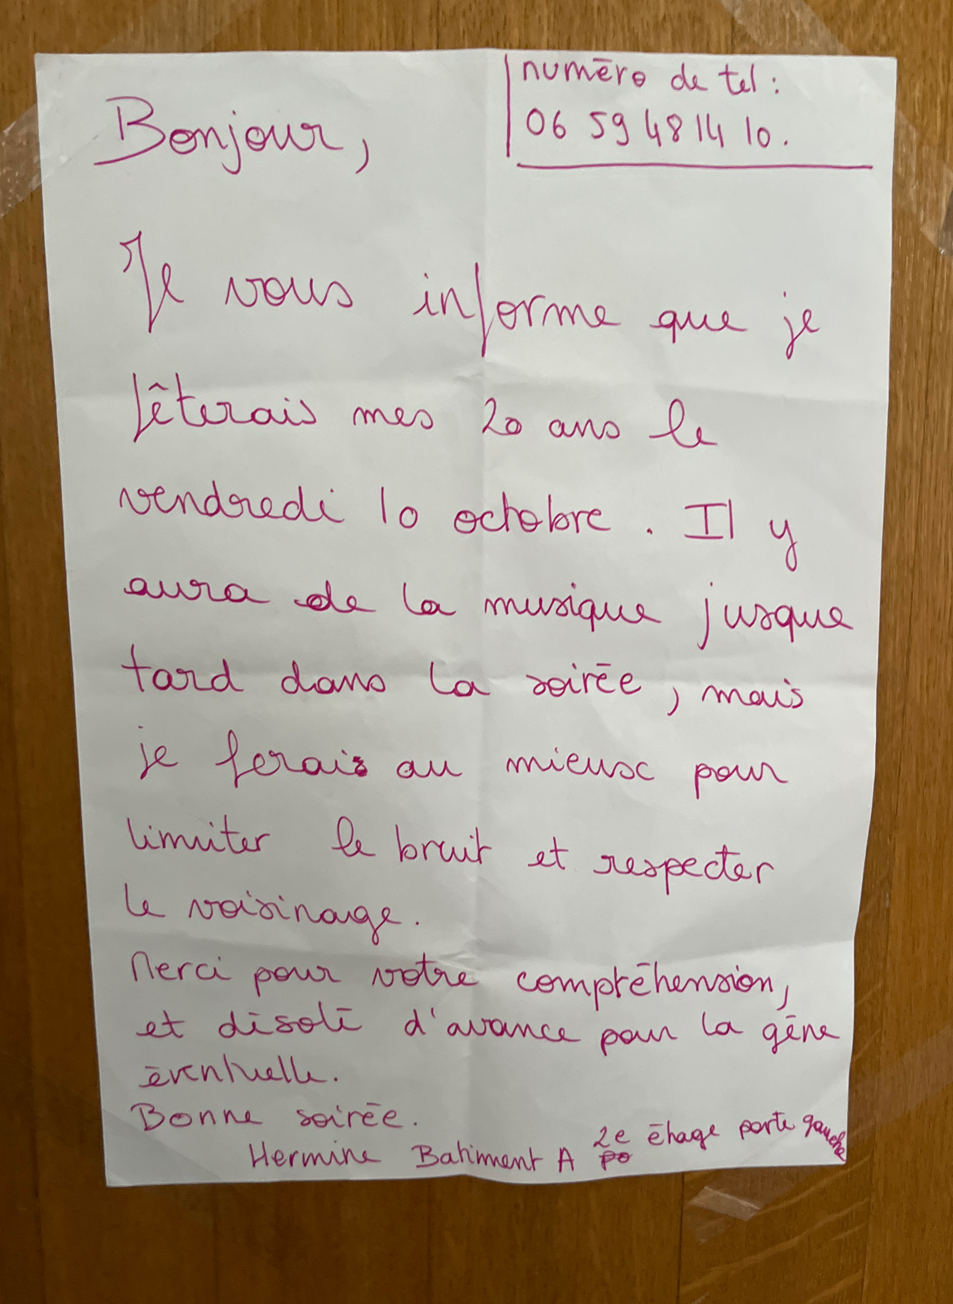 numéro de tel :
06 59 48 14 10.
Bonjour,
Je vous informe que je
fêterais mes 20 ans le
vendredi 10 octobre. Il y
aura de la musique jusque
tard dans la soirée, mais
je ferais au mieux pour
limiter le bruit et respecter
le voisinage.
Merci pour votre compréhension,
et désolé d'avance pour la gêne
éventuelle.
Bonne soirée.
Hermine Batiment A 2e étage porte gauche